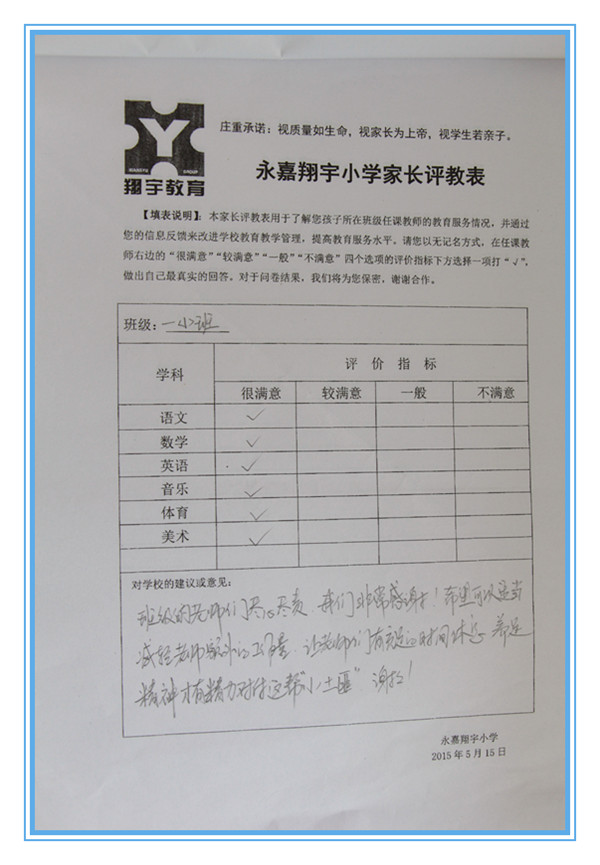 庄重承诺：视质量如生命，视家长为上帝，视学生若亲子。
Y
XIANGYU GROUP
翔宇教育
永嘉翔宇小学家长评教表
【填表说明】：本家长评教表用于了解您孩子所在班级任课教师的教育服务情况，并通过
您的信息反馈来改进学校教育教学管理，提高教育服务水平。请您以无记名方式，在任课教
师右边的“很满意”“较满意”“一般”“不满意”四个选项的评价指标下方选择一项打“√”，
做出自己最真实的回答。对于问卷结果，我们将为您保密，谢谢合作。
班级：一小班
学科 评价指标
很满意 较满意 一般 不满意
语文 ✓
数学 ✓
英语 ✓
音乐 ✓
体育 ✓
美术 ✓
对学校的建议或意见：
班级的老师们尽心尽责，我们非常感谢！希望可以适当
减轻老师额外的工作量，让老师们有充足的时间休息 养足
精神才有精力对付这帮“小土匪”谢谢！
永嘉翔宇小学
2015年5月15日